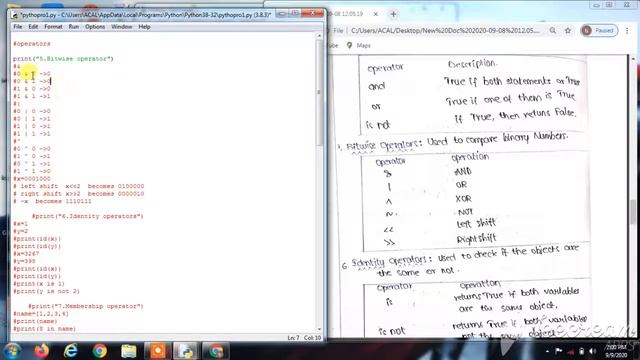 *pythopro1.py - C:\Users\ACAL\AppData\Local\Programs\Python\Python38-32\pythopro1.py (3.8.3)*
File Edit Format Run Options Window Help
#operators
print("5.Bitwise operator")
#&
#0 & 0 ->0
#0 & 1 ->0
#1 & 0 ->0
#1 & 1 ->1
#|
#0 | 0 ->0
#0 | 1 ->1
#1 | 0 ->1
#1 | 1 ->1
#^
#0 ^ 0 ->0
#0 ^ 1 ->1
#1 ^ 0 ->1
#1 ^ 1 ->0
#x=0001000
# left shift x<<2 becomes 0100000
# right shift x>>2 becomes 0000010
# ~x becomes 1110111
#print("6.Identity operators")
#x=1
#y=2
#print(id(x))
#print(id(y))
#x=3267
#y=398
#print(id(x))
#print(id(y))
#print(x is 1)
#print(y is not 2)
#print("7.Membership operator")
#name=[1,2,3,4]
#print(name)
#print(5 in name)
Ln: 7 Col: 10
ACAL/Desktop/New%20Doc%202020-09-08%2012.05.19
operator Description.
and True if both statements are True
or True if one of them is True
is not If True, then returns False.
Bitwise Operators: Used to compare binary Numbers.
operator operation
& AND
| OR
^ XOR
~ NOT
<< Left shift
>> Right shift
6. Identity Operators: Used to check if the objects are
the same or not.
operator operation
is returns True if both variables
are the same object.
is not returns True if both variables
2:00 PM
9/9/2020